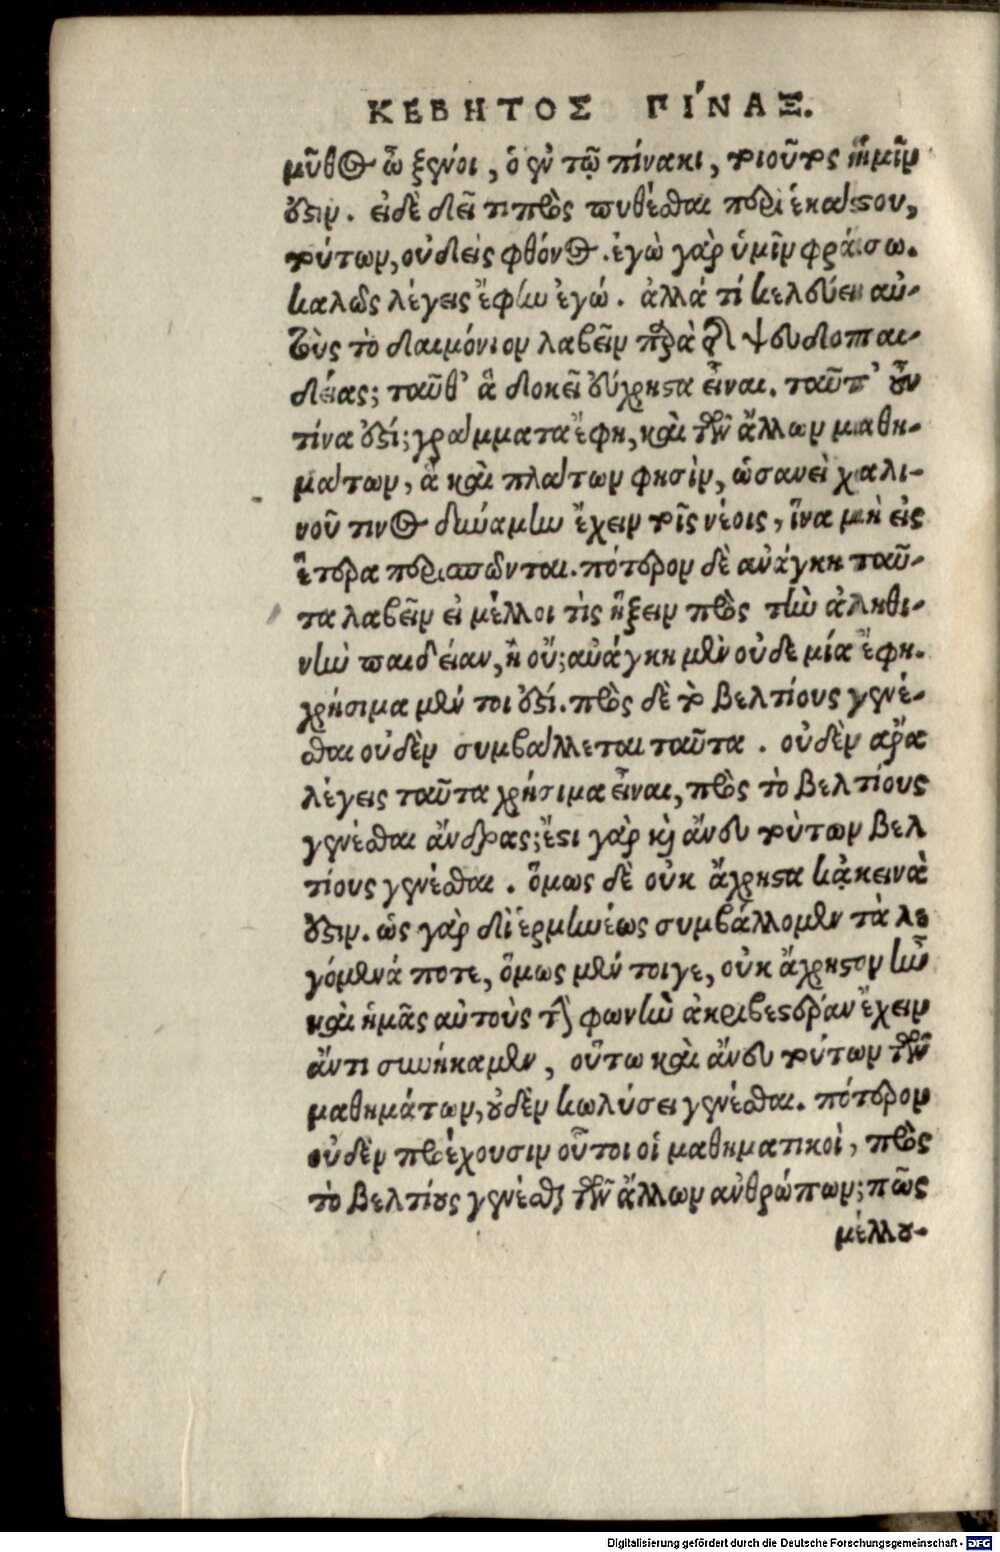 ΚΕΒΗΤΟΣ ΠΊΝΑΞ.
μῦθος ὦ ξένοι, ὁ ἐν τῷ πίνακι, τοιοῦτος ἡμῖν
ἐστιν. εἰδὲ δεῖ τι πρὸς πυθέσθαι περὶ ἑκάστου,
τούτων, οὐδεὶς φθόνος. ἐγὼ γὰρ ὑμῖν φράσω.
καλῶς λέγεις ἔφην ἐγώ. ἀλλά τί κελεύει αὐ-
τοὺς τὸ δαιμόνιον λαβεῖν παρὰ τῆς ψευδοπαι-
δείας; ταῦθ' ἃ δοκεῖ εὔχρηστα εἶναι. ταῦτ' οὖν
τίνα ἐστί; γράμματα ἔφη, καὶ τῶν ἄλλων μαθη-
μάτων, ἃ καὶ πλάτων φησὶν, ὡσανεὶ χαλι-
νοῦ τινος δύναμιν ἔχειν τοῖς νέοις, ἵνα μὴ εἰς
ἕτερα περισπῶνται. πότερον δὲ ἀνάγκη ταῦ-
τα λαβεῖν εἰ μέλλοι τὶς ἥξειν πρὸς τὴν ἀληθι-
νὴν παιδείαν, ἢ οὔ; ἀνάγκη μὲν οὐδε μία ἔφη.
χρήσιμα μέν τοι ἐστί. πρὸς δὲ τὸ βελτίους γενέ-
σθαι οὐδὲν συμβάλλεται ταῦτα. οὐδὲν ἄρα
λέγεις ταῦτα χρήσιμα εἶναι, πρὸς τὸ βελτίους
γενέσθαι ἄνδρας; ἔστι γὰρ καὶ ἄνευ τούτων βελ
τίους γενέσθαι. ὅμως δὲ οὐκ ἄχρηστα κἀκεινὰ
ἐστιν. ὡς γὰρ δι' ἑρμηνέως συμβάλλομεν τὰ λε
γόμενά ποτε, ὅμως μέν τοιγε, οὐκ ἄχρηστον ἦν
καὶ ἡμᾶς αὐτοὺς τὴν φωνὴν ἀκριβεστέραν ἔχειν
ἄν τι συνήκαμεν, οὕτω καὶ ἄνευ τούτων τῶν
μαθημάτων, οὐδὲν κωλύσει γενέσθαι. πότερον
οὐδὲν προέχουσιν οὗτοι οἱ μαθηματικοὶ, πρὸς
τὸ βελτίους γενέσθαι τῶν ἄλλων ἀνθρώπων; πῶς
μέλλου-
Digitalisierung gefördert durch die Deutsche Forschungsgemeinschaft - DFG